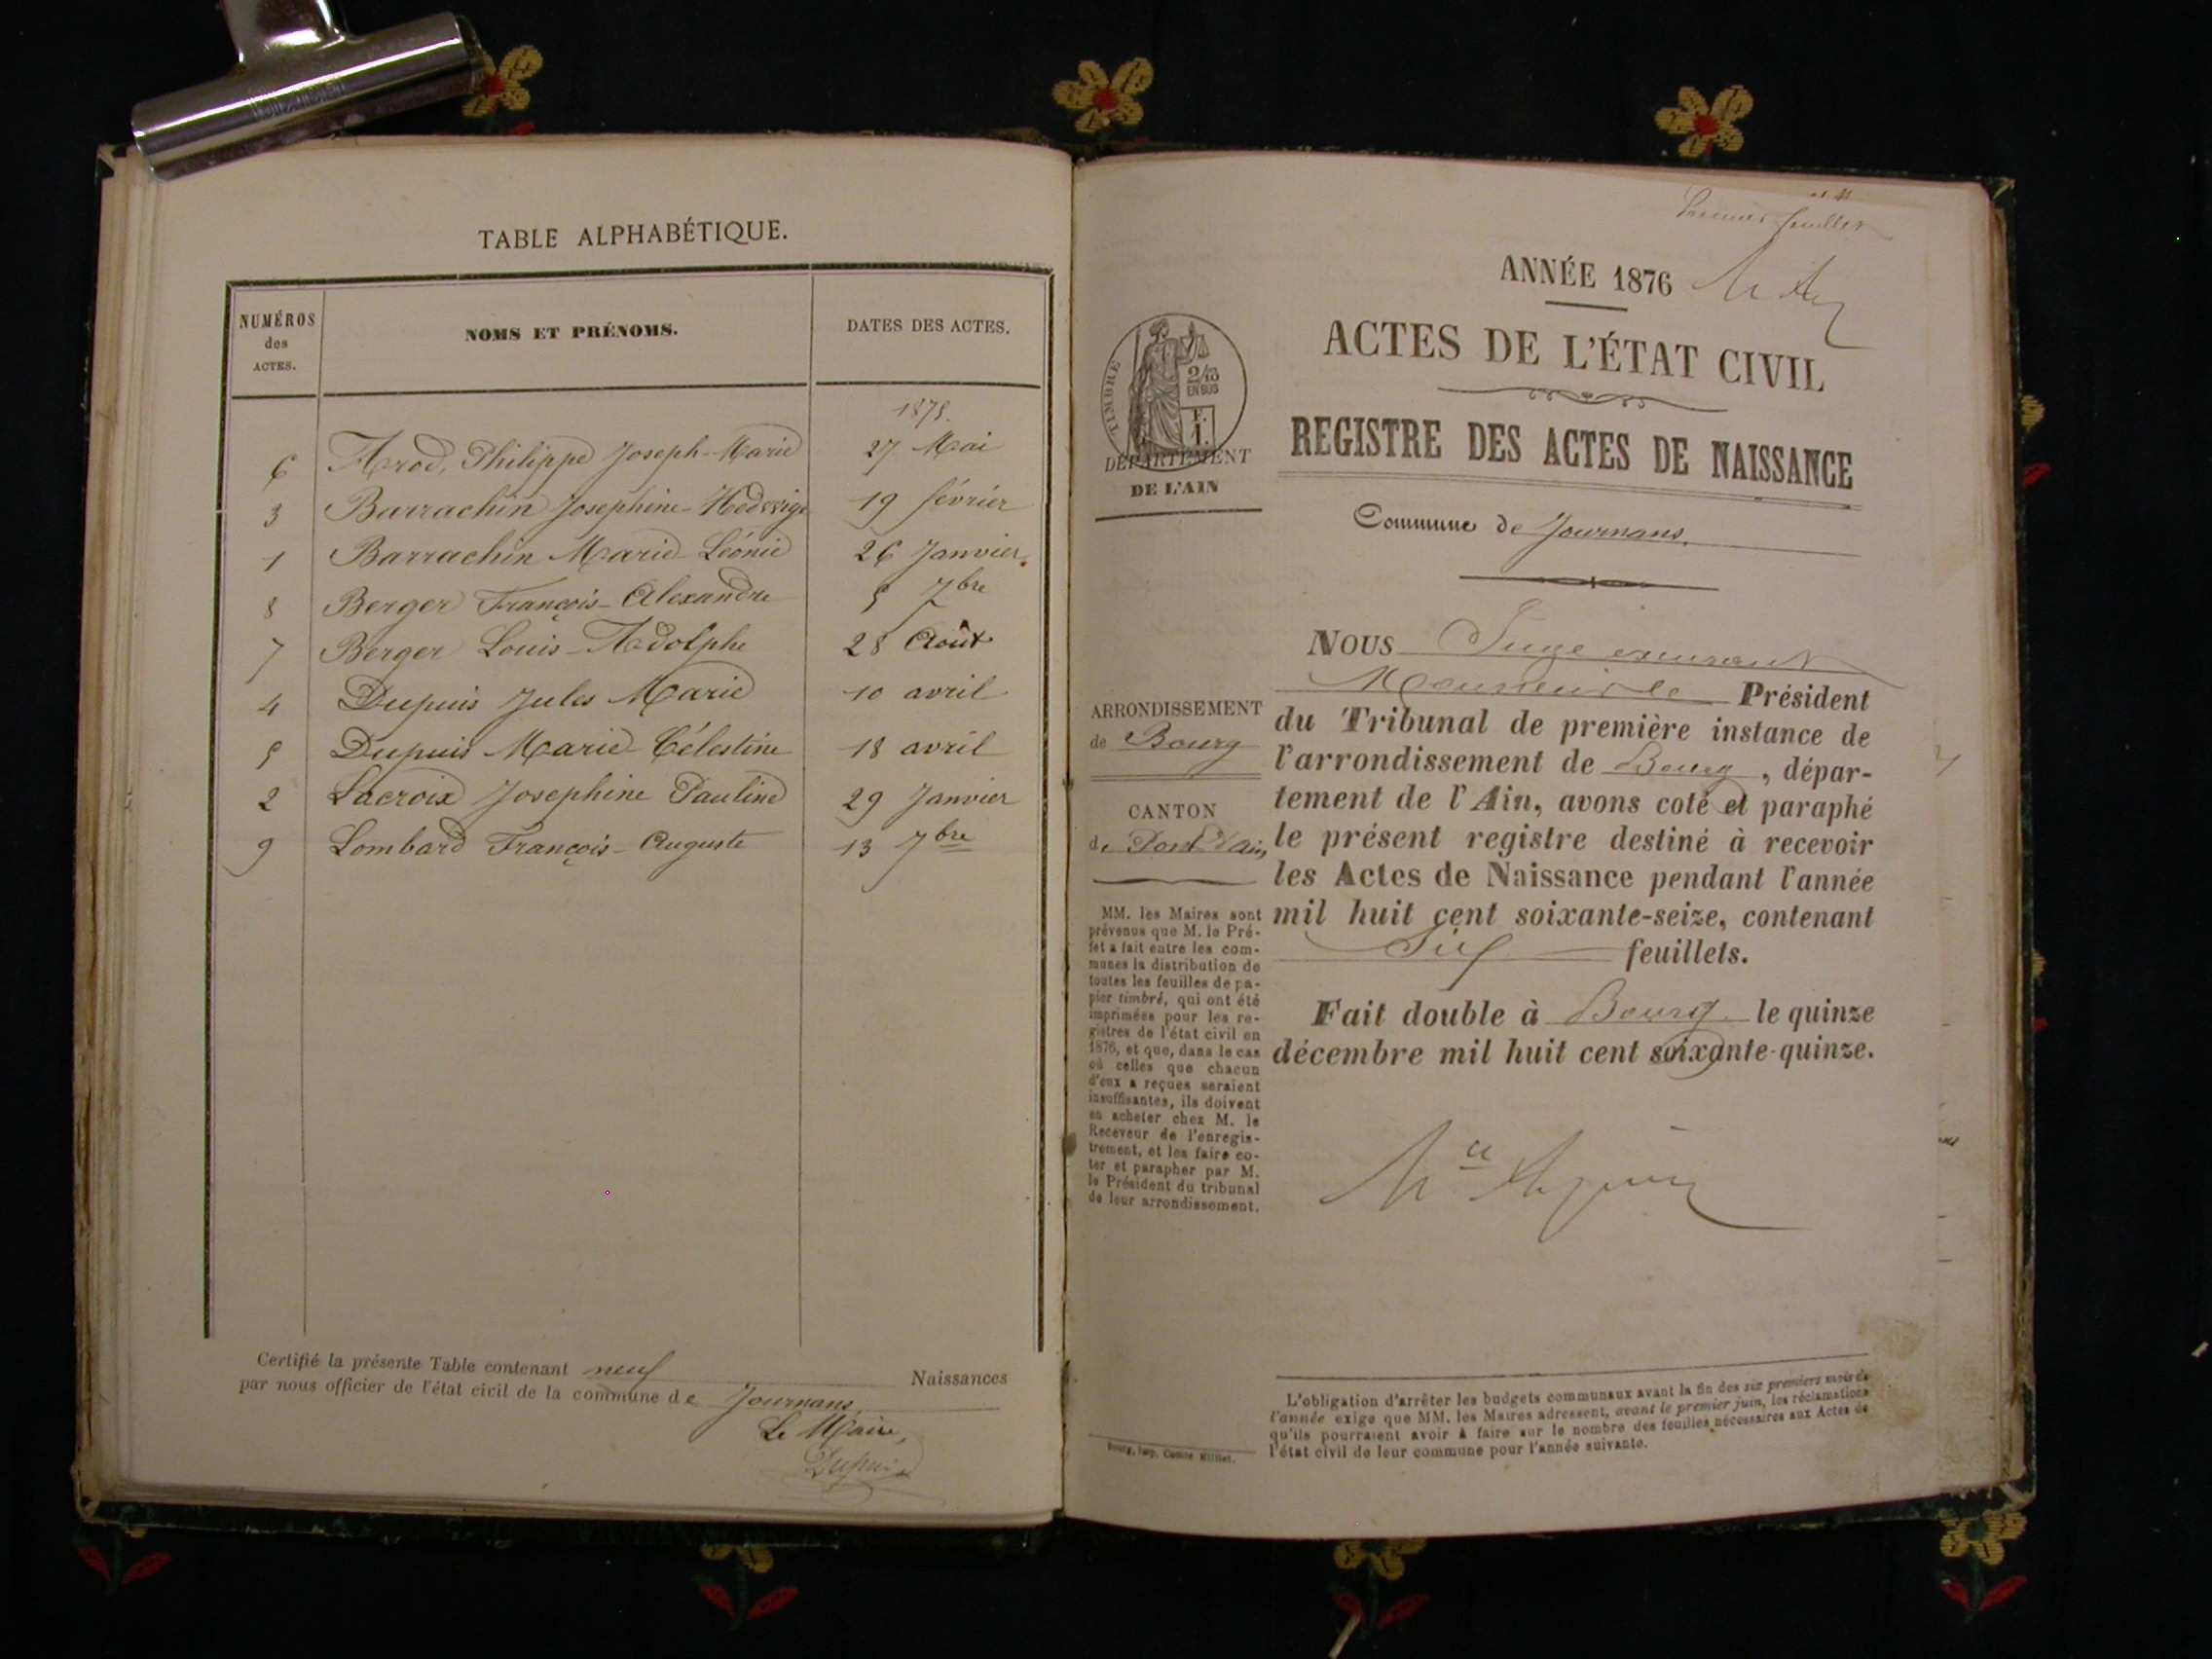 TABLE ALPHABÉTIQUE.
NUMÉROS des ACTES. NOMS ET PRÉNOMS. DATES DES ACTES.
1875.
6 Arod, Philippe Joseph-Marie 27 Mai
3 Barrachin Josephine-Hedwige 19 février
1 Barrachin Marie-Léonie 26 Janvier.
8 Berger François-Alexandre 5 7bre
7 Berger Louis-Adolphe 28 Août
4 Dupuis Jules Marie 10 avril
5 Dupuis Marie-Célestine 18 avril
2 Lacroix Josephine Pauline 29 Janvier
9 Lombard François-Auguste 13 7bre
Certifié la présente Table contenant neuf Naissances
par nous officier de l'état civil de la commune de Journans
Le Maire,
Dupuis
Premier feuillet
ANNÉE 1876
ACTES DE L'ÉTAT CIVIL
REGISTRE DES ACTES DE NAISSANCE
Commune de Journans.
TIMBRE
2/10
EN SUS
F.
1.
DÉPARTEMENT
DE L'AIN
ARRONDISSEMENT
de Bourg
CANTON
de Pont d'Ain
MM. les Maires sont
prévenus que M. le Pré-
fet a fait entre les com-
munes la distribution de
toutes les feuilles de pa-
pier timbré, qui ont été
imprimées pour les re-
gistres de l'état civil en
1876, et que, dans le cas
où celles que chacun
d'eux a reçues seraient
insuffisantes, ils doivent
en acheter chez M. le
Receveur de l'enregis-
trement, et les faire co-
ter et parapher par M.
le Président du tribunal
de leur arrondissement.
NOUS Juge
Président
du Tribunal de première instance de
l'arrondissement de Bourg, dépar-
tement de l'Ain, avons coté et paraphé
le présent registre destiné à recevoir
les Actes de Naissance pendant l'année
mil huit cent soixante-seize, contenant
feuillets.
Fait double à Bourg le quinze
décembre mil huit cent soixante-quinze.
L'obligation d'arrêter les budgets communaux avant la fin des six premiers mois de
l'année exige que MM. les Maires adressent, avant le premier juin, les réclamations
qu'ils pourraient avoir à faire sur le nombre des feuilles nécessaires aux Actes de
l'état civil de leur commune pour l'année suivante.
Bourg, Imp. Comte Milliet.